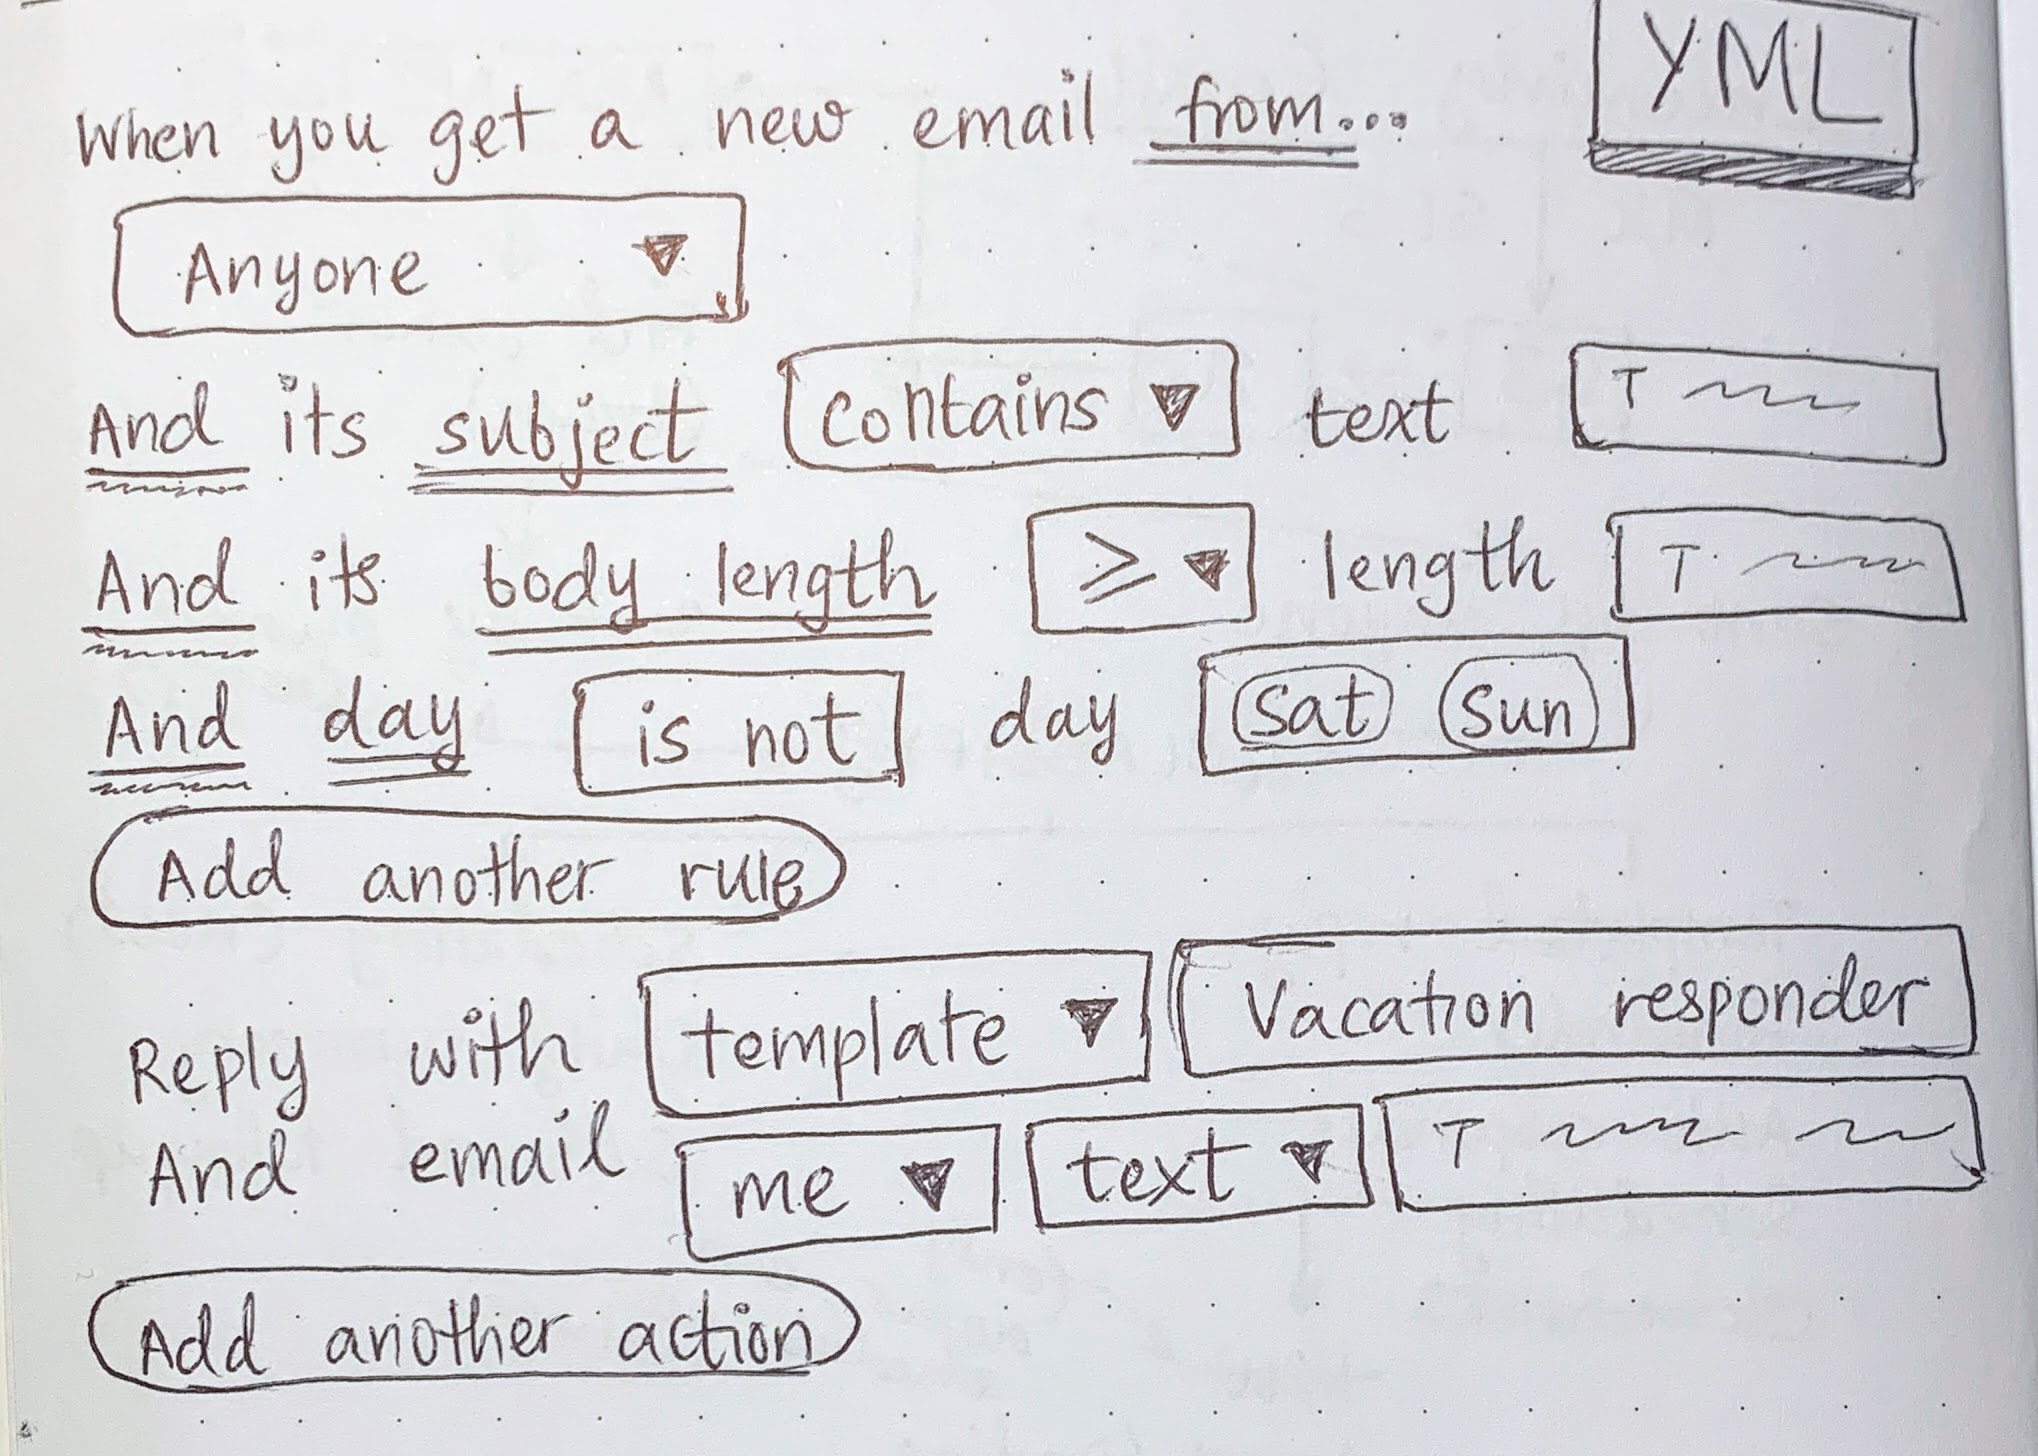 When you get a new email from...
YML
Anyone
And its subject contains text T
And its body length ≥ length T
And day is not day Sat Sun
Add another rule
Reply with template Vacation responder
And email me text T
Add another action